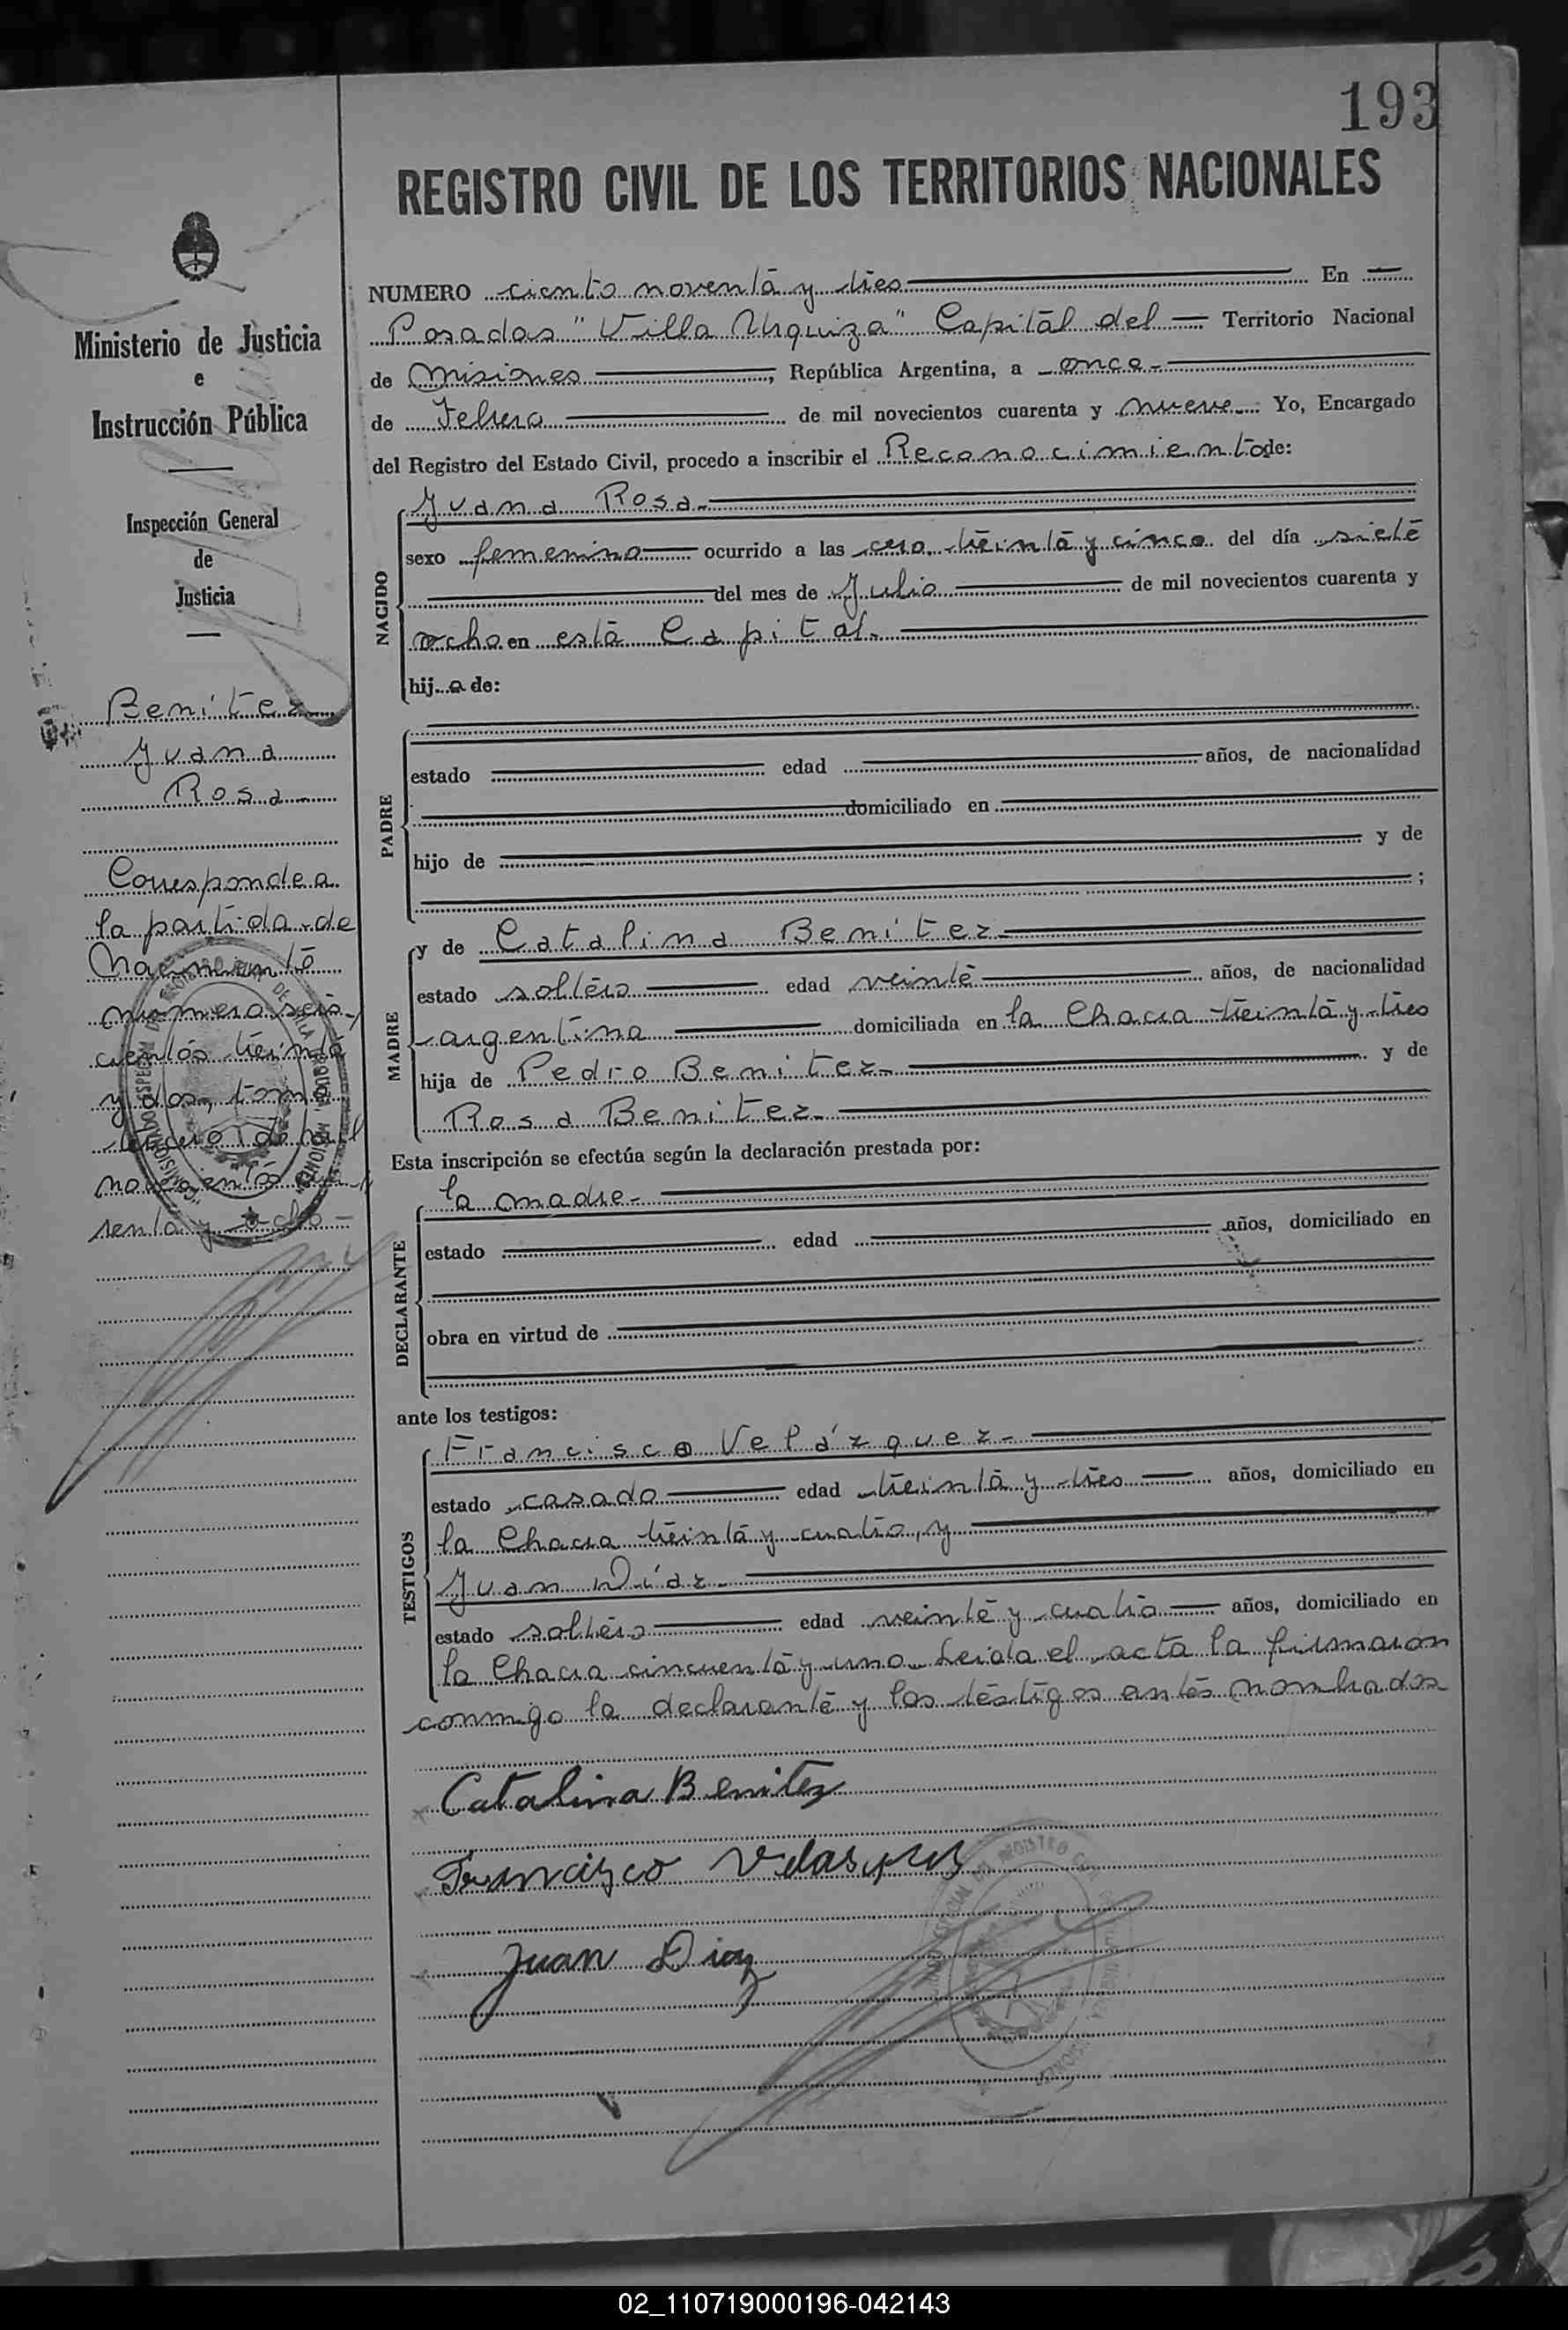 193
REGISTRO CIVIL DE LOS TERRITORIOS NACIONALES
Ministerio de Justicia
e
Instrucción Pública
Inspección General
de
Justicia
Benítez
Juana
Rosa
Corresponde a
la partida de
Nacimiento
número seis-
cientos treinta
y dos, tomo
tercero de mil
novecientos cua-
renta y ocho
NUMERO ciento noventa y tres En
Posadas "Villa Urquiza" Capital del Territorio Nacional
de Misiones, República Argentina, a once
de Febrero de mil novecientos cuarenta y nueve Yo, Encargado
del Registro del Estado Civil, procedo a inscribir el Reconocimiento de:
NACIDO
Juana Rosa
sexo femenino ocurrido a las cero treinta y cinco del día siete
del mes de Julio de mil novecientos cuarenta y
ocho en esta Capital.
hij a de:
PADRE
estado edad años, de nacionalidad
domiciliado en
hijo de y de
;
MADRE
y de Catalina Benitez
estado soltera edad veinte años, de nacionalidad
argentina domiciliada en la Chacra treinta y tres
hija de Pedro Benitez y de
Rosa Benitez
Esta inscripción se efectúa según la declaración prestada por:
DECLARANTE
la madre
estado edad años, domiciliado en
obra en virtud de
ante los testigos:
TESTIGOS
Francisco Velázquez
estado casado edad treinta y tres años, domiciliado en
la Chacra treinta y cuatro, y
Juan Díaz
estado soltero edad veinte y cuatro años, domiciliado en
la Chacra cincuenta y uno. Leida el acta la firmaron
conmigo la declarante y los testigos antes nombrados
Catalina Benitez
Francizco Velasquez
Juan Diaz
02_110719000196-042143